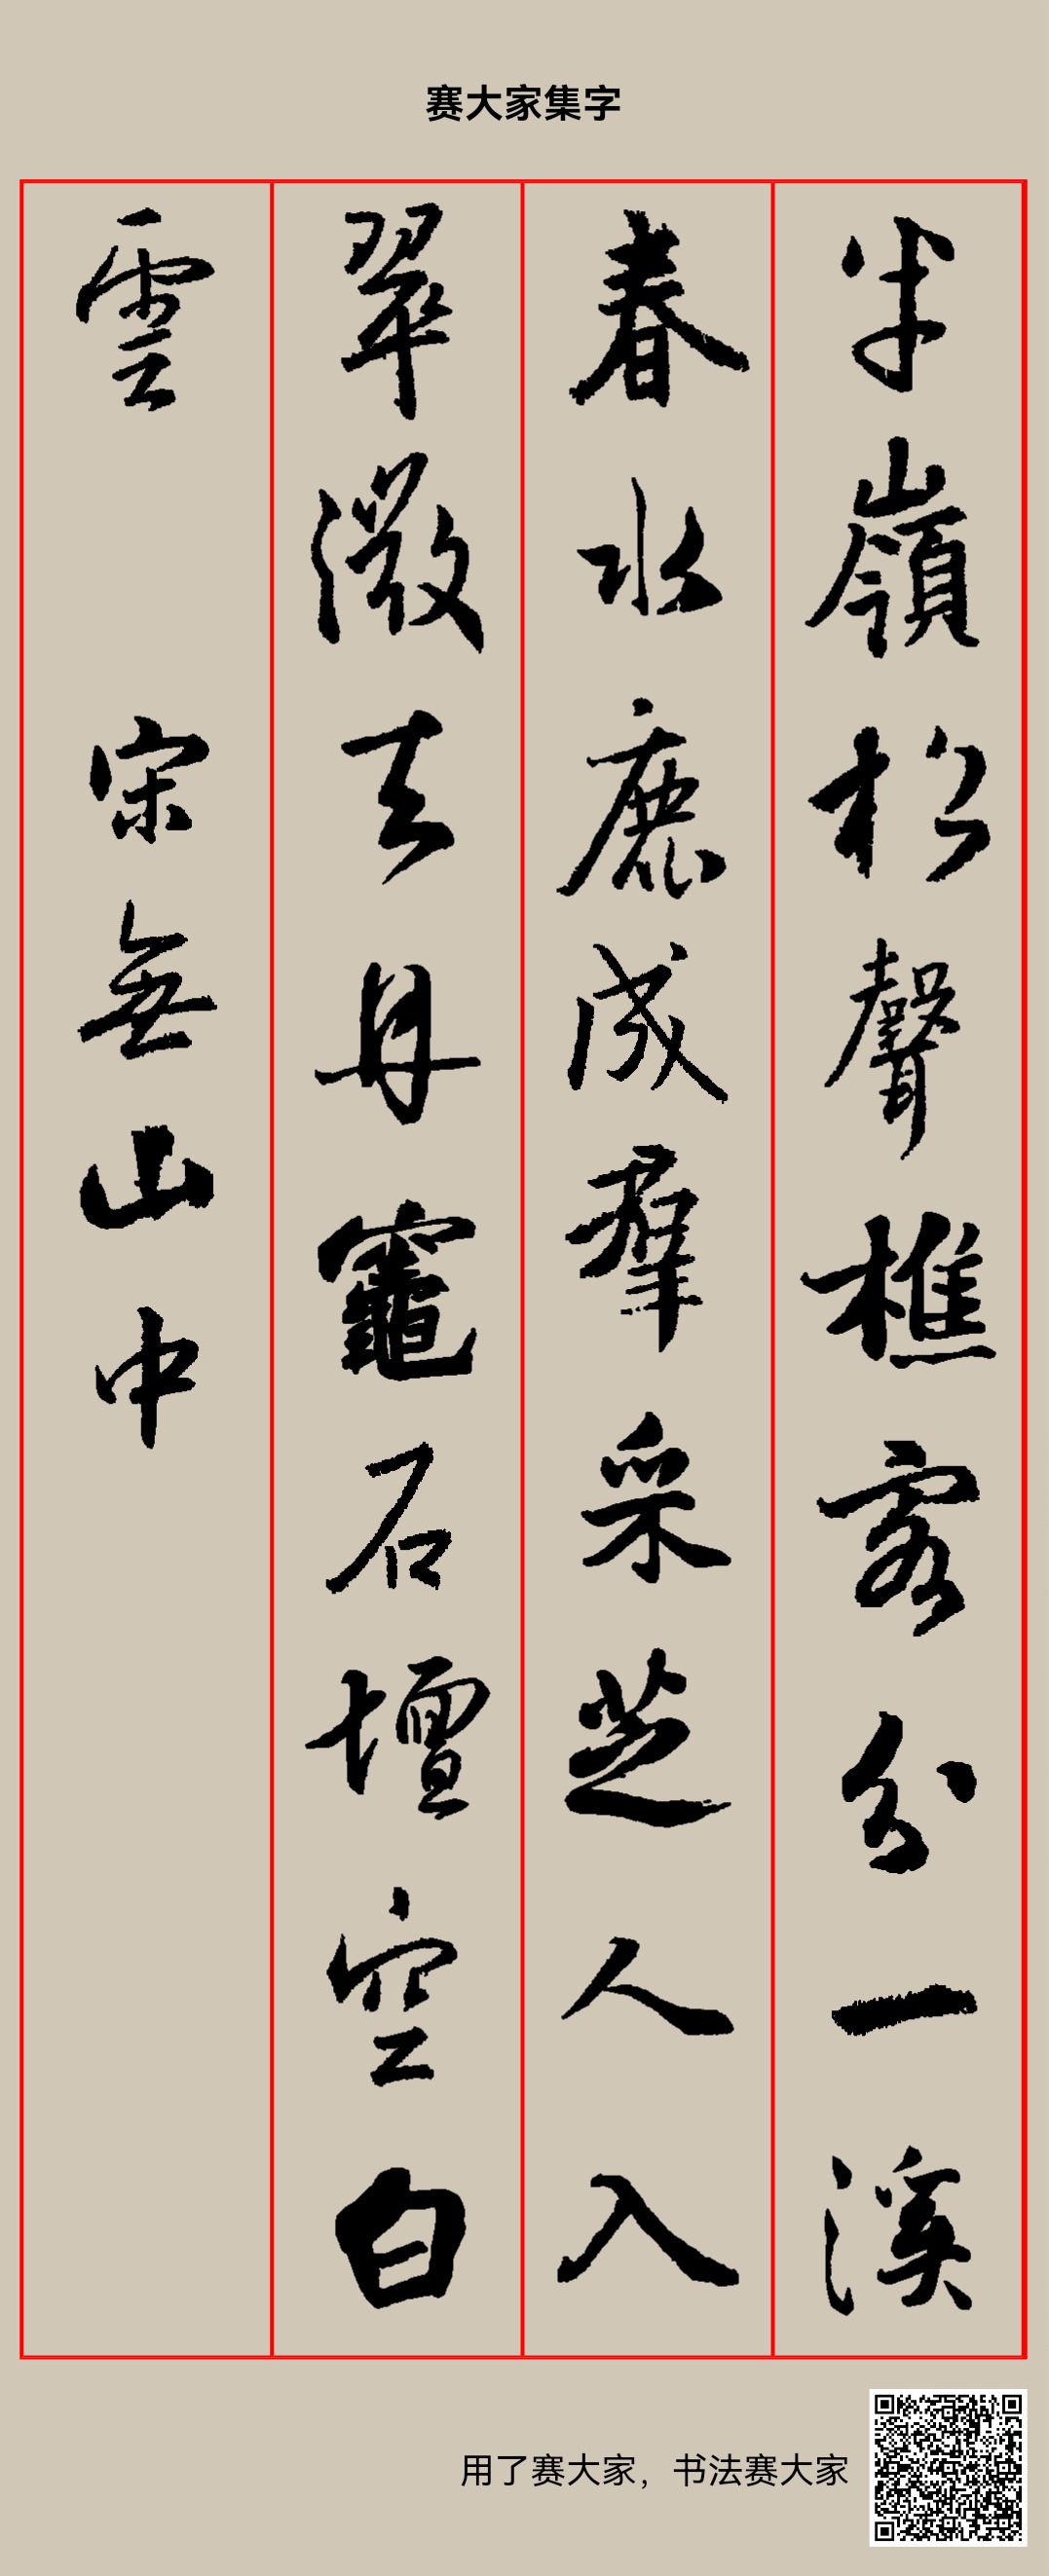 赛大家集字
半嶺松聲樵客分一溪
春水鹿成羣采芝人入
翠微去丹竈石壇空白
雲 宋無山中
用了赛大家，书法赛大家